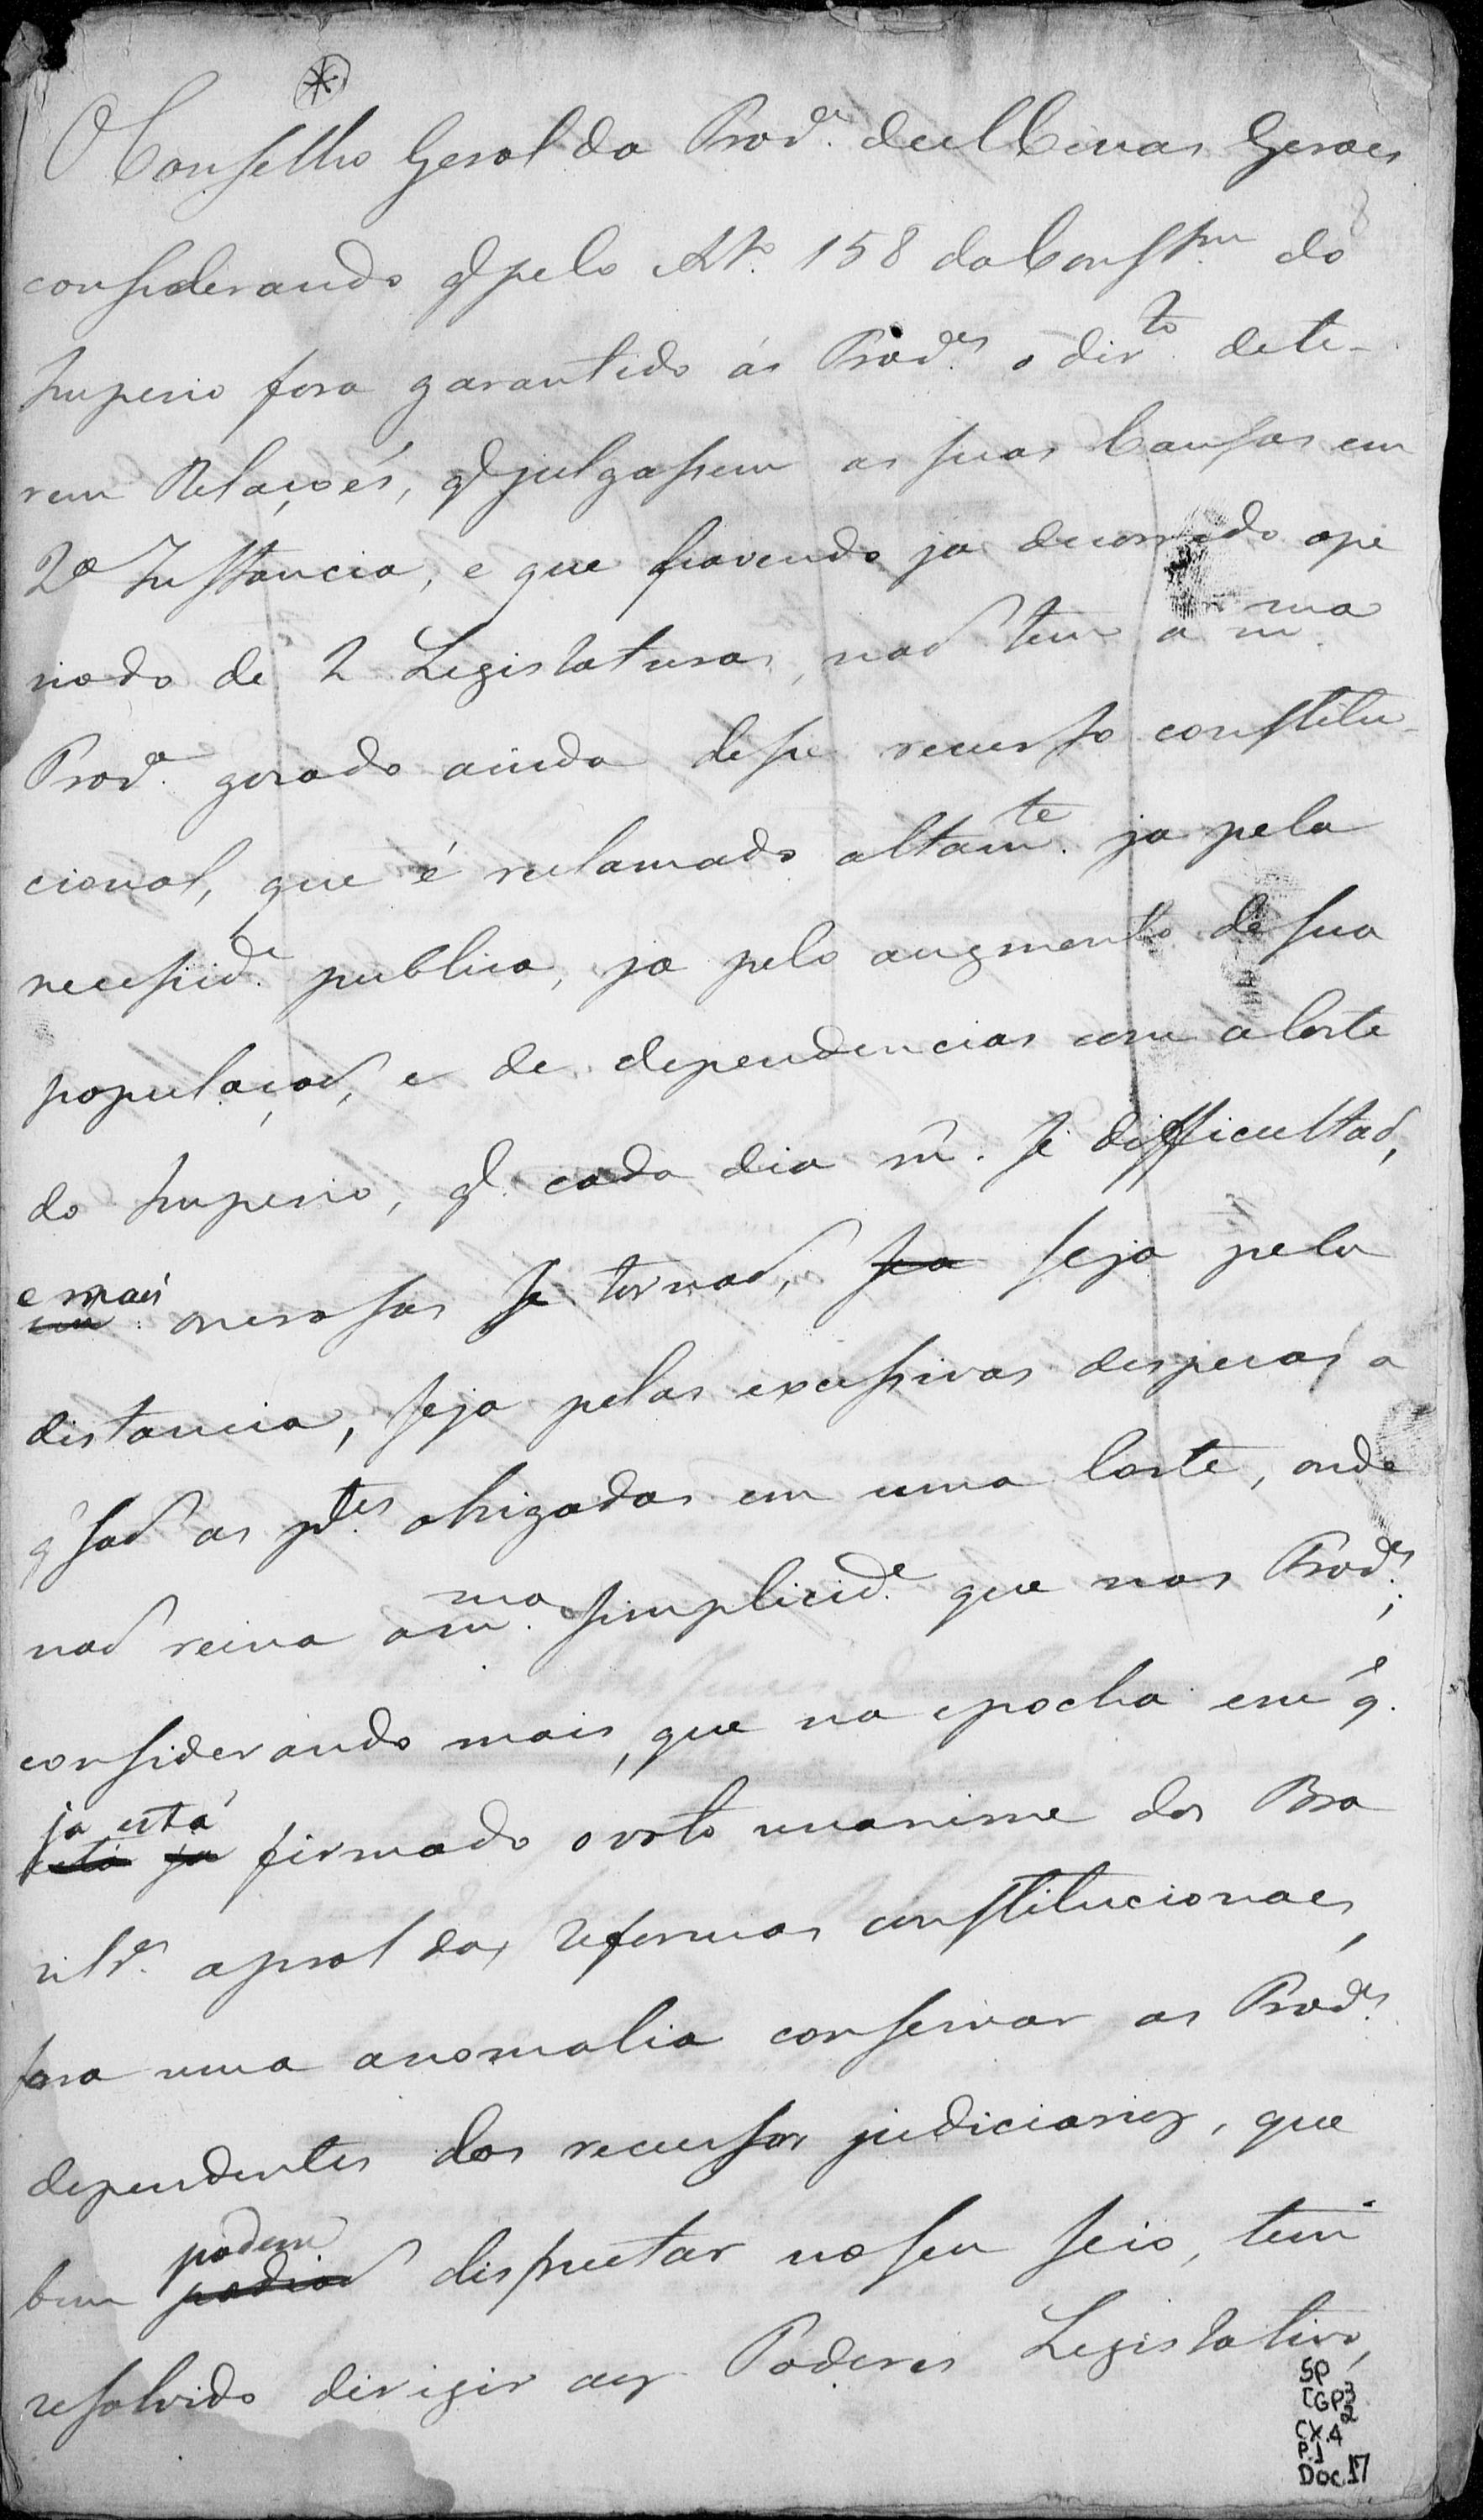 O Conselho Geral da Prov.ª de Minas Geraes
considerando q̃ pelo Art.º 158 da Const.m do
Imperio fora garantido ás Prov.es o dir.to de te-
rem Relaçoẽs, q̃ julgassem as suas Causas em
2ª Instancia, e que havendo ja decorrido o pe
riodo de 2 Legislaturas, naõ tem a m.ma
Prov.ª gosado ainda desse recurso constitu-
cional, que é reclamado altam.te ja pela
necessid.e publica, ja pelo augmento de sua
populaçaõ, e de dependencias com a Corte
do Imperio, q̃. cada dia m̃. se difficultaõ,
e mais onerosas se tornaõ, sea seja pela
distancia, seja pelas excessivas despezas a
q̃ saõ as p.tes obrigadas em uma Corte, onde
naõ reina a m.ma simplicid.e que nas Prov.es;
considerando mais, que na epocha em q̃.
ja está
está ja firmado o voto unanime dos Bra
zilr.os a prol das reformas constitucionaes,
fora uma anomalia conservar as Prov.es
dependentes dos recursos judiciarios, que
podem
bem podiaõ disfructar no seu seio, tem
resolvido dirigir aos Poderes Legislativo,
SP
CGP3
2
CX.4
P.1
Doc.17